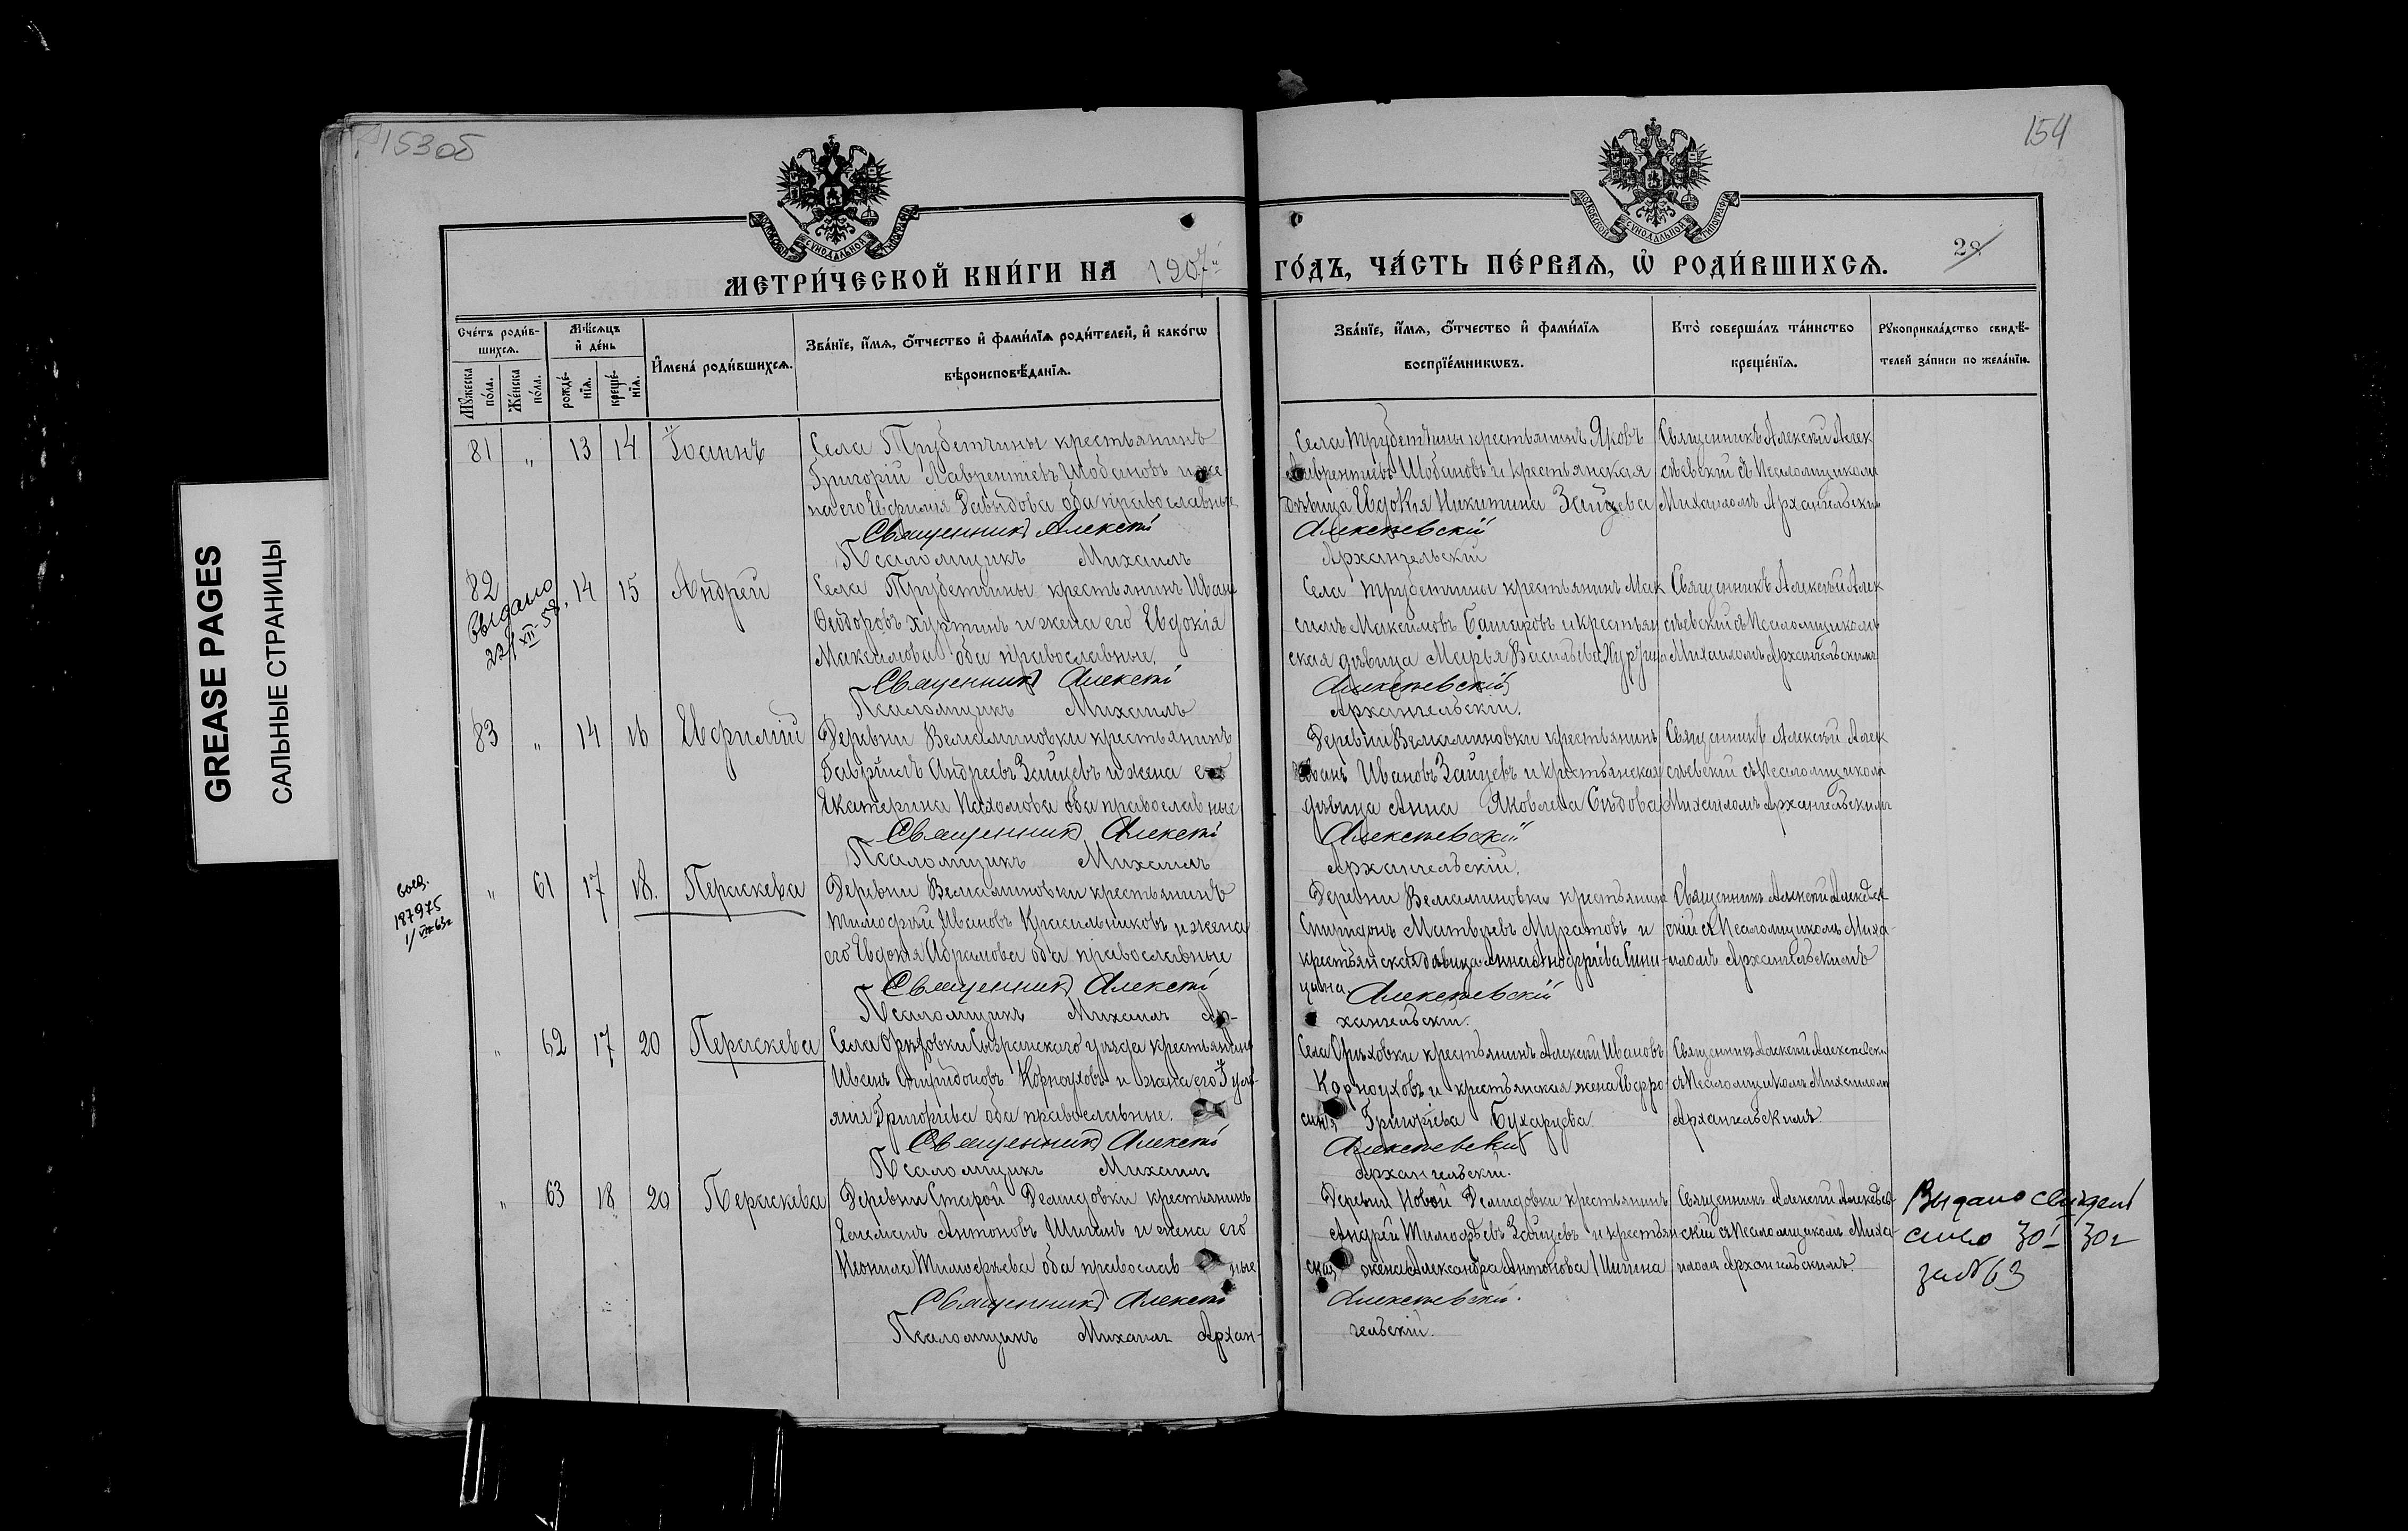 153об
154
МОСКОВСКОЙ СѴНОДАЛЬНОЙ ТИПОГРАФІИ
МОСКОВСКОЙ СѴНОДАЛЬНОЙ ТИПОГРАФІИ
МЕТРИ́ЧЕСКОЙ КНИ́ГИ НА 1907й ГО́ДЪ, ЧА́СТЬ ПЕ́РВАѦ, Ѡ҆ РОДИ́ВШИХСѦ.
GREASE PAGES
САЛЬНЫЕ СТРАНИЦЫ
Сче́тъ роди́в-
шихсѧ.
Мꙋ́жеска по́ла.
Же́нска по́ла.
Мѣ́сѧцъ
и҆ де́нь
рожде́-
нїѧ.
креще́-
нїѧ.
И҆мена̀ роди́вшихсѧ.
Зва́нїе, и҆́мѧ, ѻ҆́тчество и҆ фами́лїѧ роди́телей, и҆ како́гѡ
вѣроисповѣ́данїѧ.
Зва́нїе, и҆́мѧ, ѻ҆́тчество и҆ фами́лїѧ
воспрїе́мникѡвъ.
Кто̀ соверша́лъ та́инство
креще́нїѧ.
Рꙋкоприкла́дство свидѣ́-
телей за́писи по жела́нїю.
81 " 13 14 Іоаннъ
Села Трубетчины крестьянинъ
Григорій Лаврентіевъ Шобановъ и же
на его Евфимія Давыдова оба православные
Священникъ Алексѣй
Псаломщикъ Михаилъ
Села Трубетчины крестьянинъ Яковъ
Лаврентіевъ Шобановъ и крестьянская
дѣвица Евдокія Никитина Зайцева
Алексѣевскій
Архангельскій
Священникъ Алексѣй Алек
сѣевскій съ Псаломщикомъ
Михаиломъ Архангельскимъ
82 14 15 Андрей
Выдано
22/XII-58.
Села Трубетчины крестьянинъ Иванъ
Ѳеодоровъ Хуртинъ и жена его Евдокія
Максимова оба православные.
Священникъ Алексѣй
Псаломщикъ Михаилъ
Села Трубетчины крестьянинъ Мак
симъ Максимовъ и крестьян
ская дѣвица Марья Васильева
Алексѣевскій
Архангельскій.
Священникъ Алексѣй Алек
сѣевскій съ Псаломщикомъ
Михаиломъ Архангельскимъ
83 " 14 16 Евфимій
Деревни Вельяминовки крестьянинъ
Гавріилъ Андреевъ Зайцевъ и жена его
Екатерина Пахомова оба православные
Священникъ Алексѣй
Псаломщикъ Михаилъ
Деревни Вельяминовки крестьянинъ
Иванъ Ивановъ Зайцевъ и крестьянская
дѣвица Анна Яковлева Сѣдова
Алексѣевскій
Архангельскій.
Священникъ Алексѣй Алек
сѣевскій съ Псаломщикомъ
Михаиломъ Архангельскимъ
187975
1/VII-63г
" 61 17 18. Пераскева
Деревни Вельяминовки крестьянинъ
Тимофей Ивановъ Красильниковъ и жена
его Евдокія Абрамова оба православные
Священникъ Алексѣй
Псаломщикъ Михаилъ Ар-
Деревни Вельяминовки крестьянинъ
Матвѣевъ Муратовъ и
крестьянская дѣвица Анна Сини-
цына. Алексѣевскій
хангельскій.
Священникъ Алексѣй Алексѣев
скій съ Псаломщикомъ Миха-
иломъ Архангельскимъ
" 62 17 20 Пераскева
Села Орѣховки Сызранскаго уѣзда крестьянинъ
Иванъ Спиридоновъ Корноуховъ и жена его Іуль-
янія Григорьева оба православные.
Священникъ Алексѣй
Псаломщикъ Михаилъ
Села Орѣховки крестьянинъ Алексѣй Ивановъ
Корноуховъ и крестьянская жена Евфро-
синія Григоріева Бухарцева
Алексѣевскій
Архангельскій.
Священникъ Алексѣй Алексѣевскій
съ Псаломщикомъ Михаиломъ
Архангельскимъ
" 63 18 20 Пераскева
Деревни Старой Демидовки крестьянинъ
Антоновъ Шигинъ и жена его
Неонила Тимофѣева оба православные
Священникъ Алексѣй
Псаломщикъ Михаилъ Архан-
Деревни Новой Демидовки крестьянинъ
Андрей Тимофѣевъ Зайцевъ и крестьян
ская жена Александра Антонова Шигина
Алексѣевскій.
гельскій.
Священникъ Алексѣй Алексѣев-
скій съ Псаломщикомъ Миха-
иломъ Архангельскимъ.
Выдано свидет
30г
за № 63